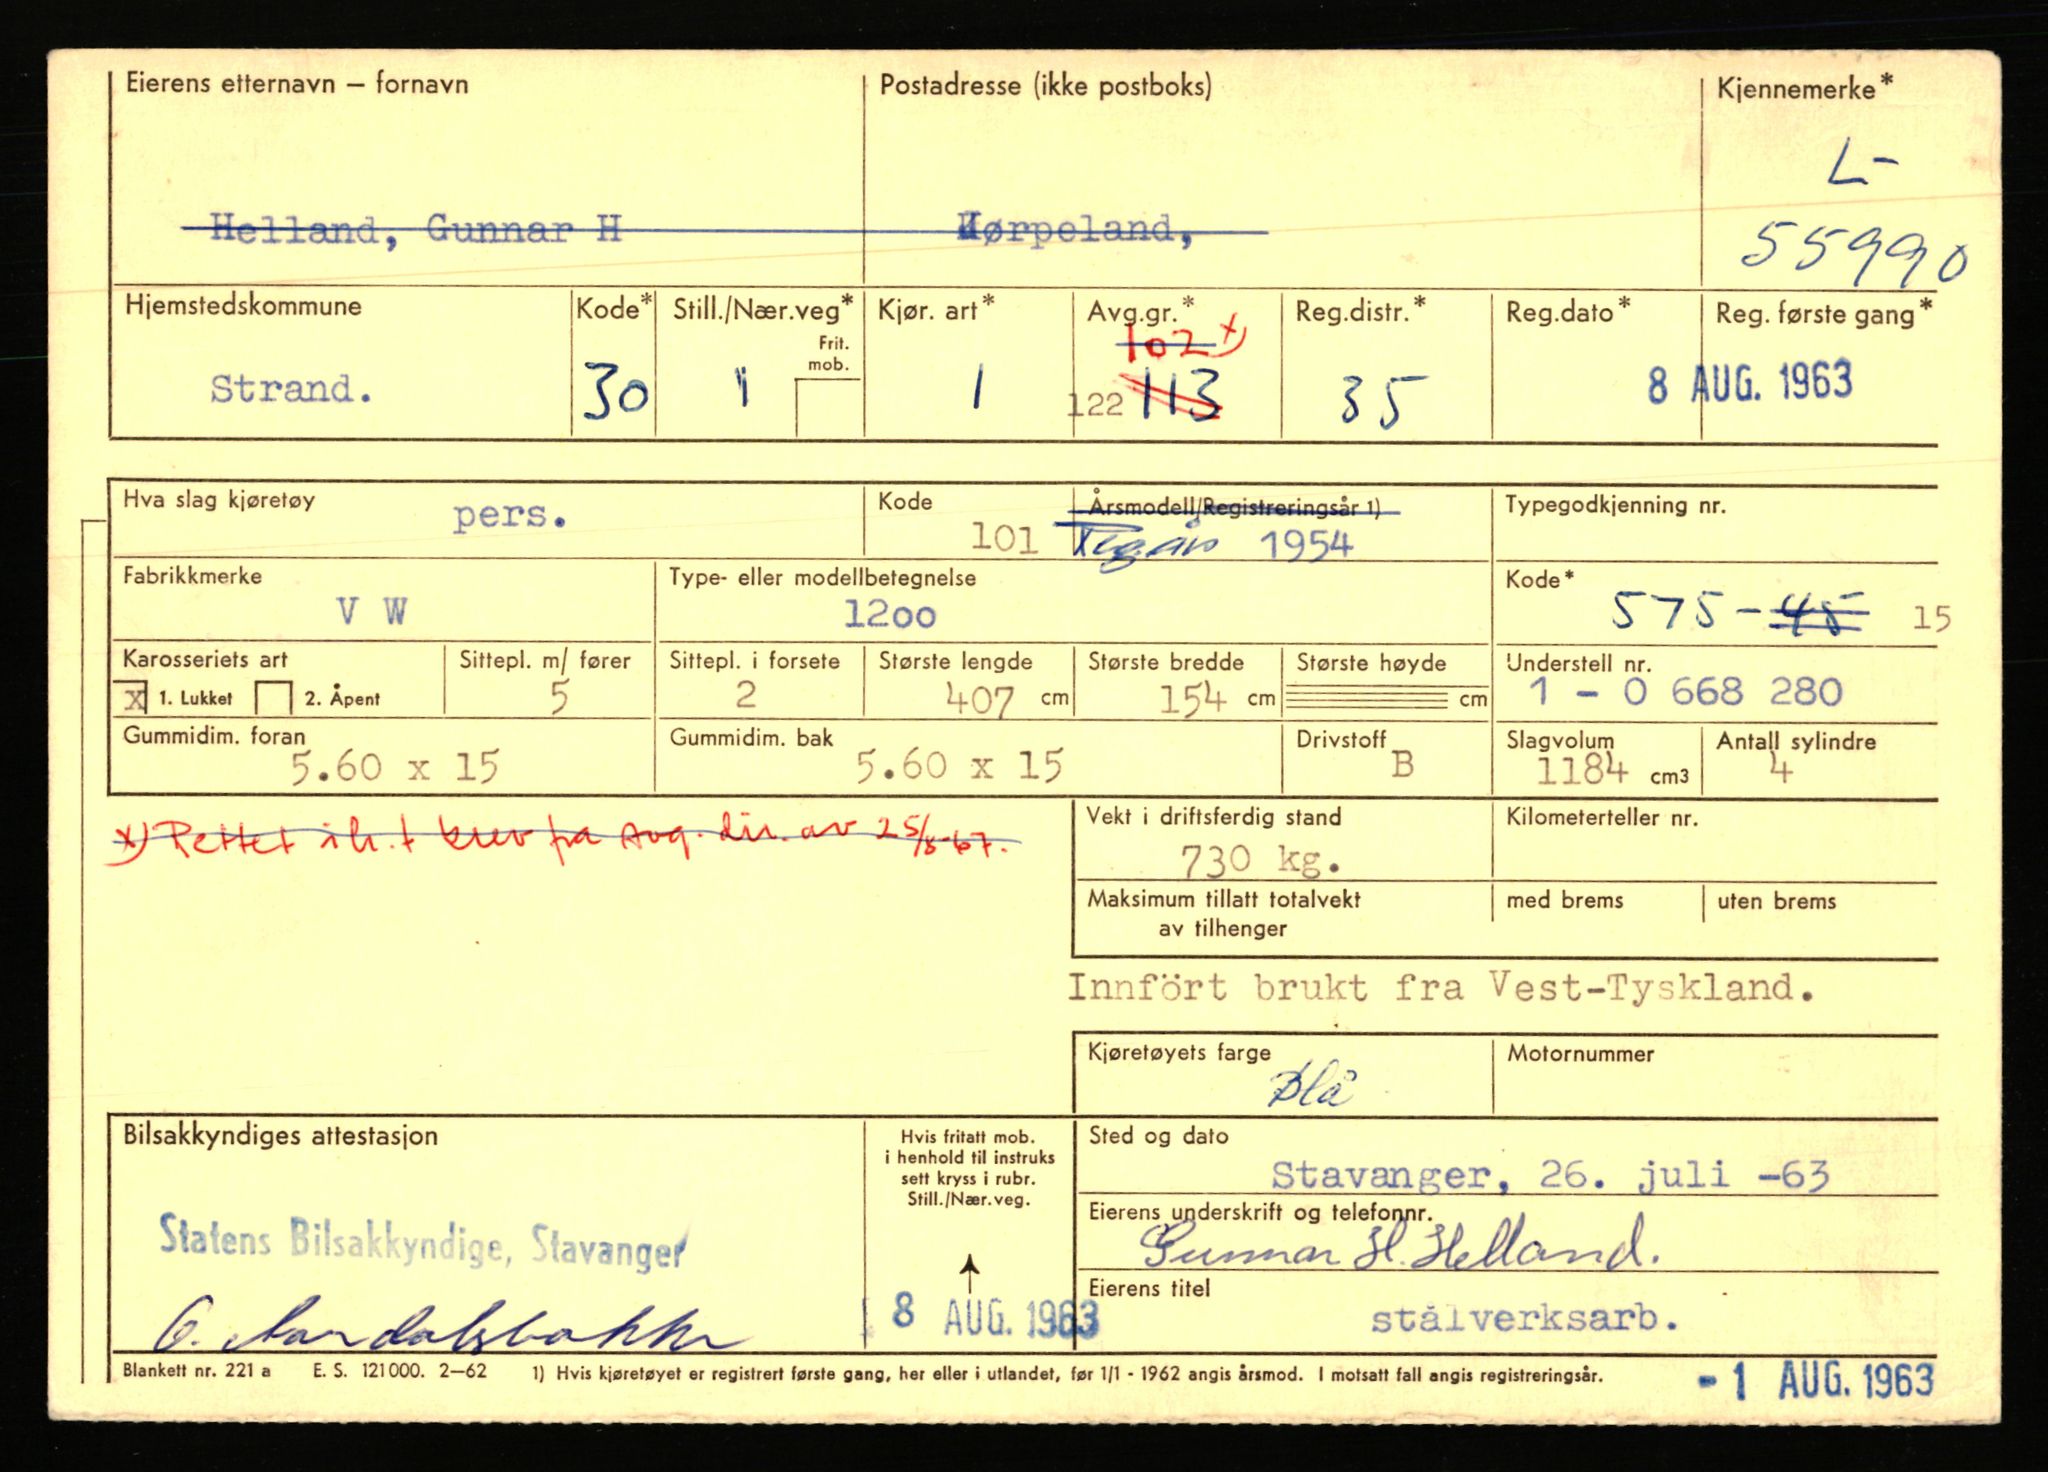 Eierens etternavn – fornavn Postadresse (ikke postboks) Kjennemerke*
L-
Helland, Gunnar H Jørpeland, 55990
Hjemstedskommune Kode* Still./Nær.veg* Kjør. art* Avg.gr.* Reg.distr.* Reg.dato* Reg. første gang*
Frit. mob. 102 x)
Strand. 30 1 1 122 113 35 8 AUG. 1963
Hva slag kjøretøy pers. Kode 101 Årsmodell/Registreringsår 1) Typegodkjenning nr.
Regår 1954
Fabrikkmerke Type- eller modellbetegnelse Kode*
V W 1200 575-45 15
Karosseriets art Sittepl. m/ fører Sittepl. i forsete Største lengde Største bredde Største høyde Understell nr.
x 1. Lukket 2. Åpent 5 2 407 cm 154 cm cm 1 - 0 668 280
Gummidim. foran Gummidim. bak Drivstoff Slagvolum Antall sylindre
5.60 x 15 5.60 x 15 B 1184 cm3 4
x) Rettet i h.t brev fra Avg. dir. av 25/8-67.
Vekt i driftsferdig stand Kilometerteller nr.
730 kg.
Maksimum tillatt totalvekt med brems uten brems
av tilhenger
Innfört brukt fra Vest-Tyskland.
Kjøretøyets farge Motornummer
Blå
Bilsakkyndiges attestasjon Hvis fritatt mob. Sted og dato
i henhold til instruks
sett kryss i rubr. Stavanger, 26. juli -63
Still./Nær.veg.
Eierens underskrift og telefonnr.
Statens Bilsakkyndige, Stavanger Gunnar H. Helland.
Eierens titel
8 AUG. 1963 stålverksarb.
Blankett nr. 221 a E. S. 121000. 2–62 1) Hvis kjøretøyet er registrert første gang, her eller i utlandet, før 1/1 - 1962 angis årsmod. I motsatt fall angis registreringsår. - 1 AUG. 1963